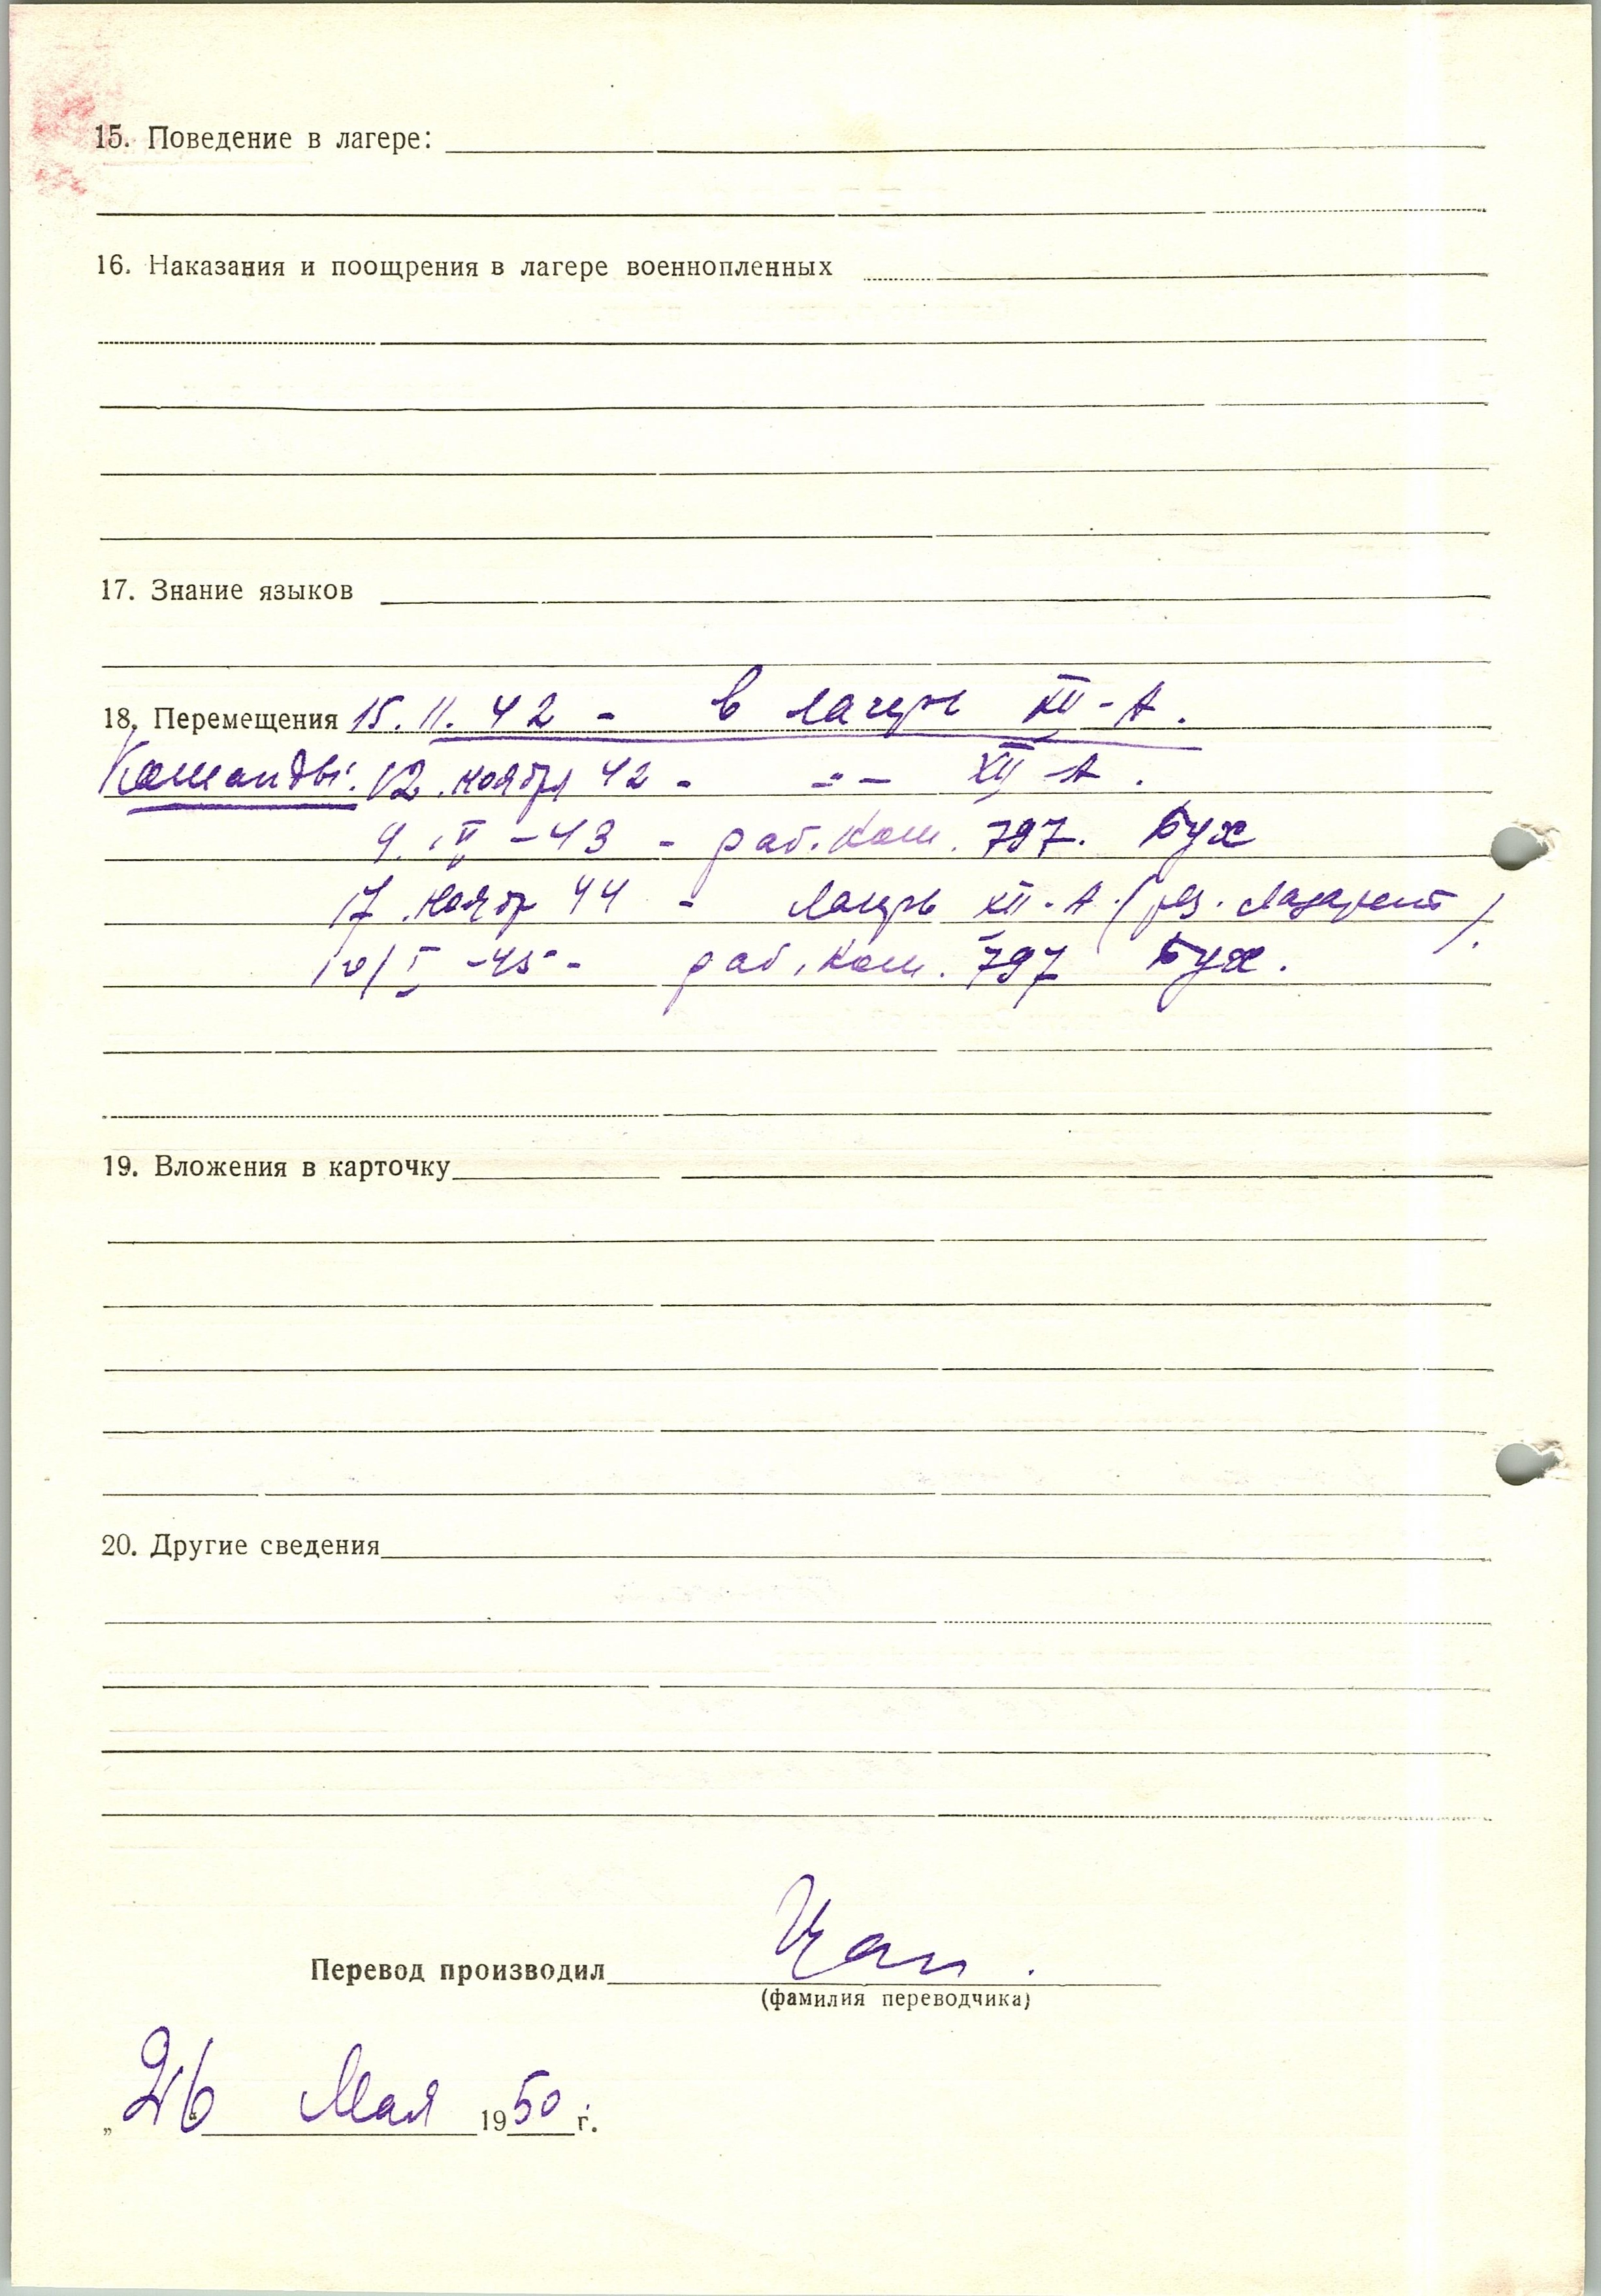 15. Поведение в лагере:
16. Наказания и поощрения в лагере военнопленных
17. Знание языков
18. Перемещения 15.11.42 - в лагерь XII-А.
Команды: 12 ноября 42 - -"- XII-А.
- 43 - раб. ком. 797. Бух
17 ноябр 44 - лагерь XII-А. (рез. лазарет).
10/I -45 - раб. ком. 797 Бух.
19. Вложения в карточку
20. Другие сведения
Перевод производил
(фамилия переводчика)
„26“ Мая 1950 г.